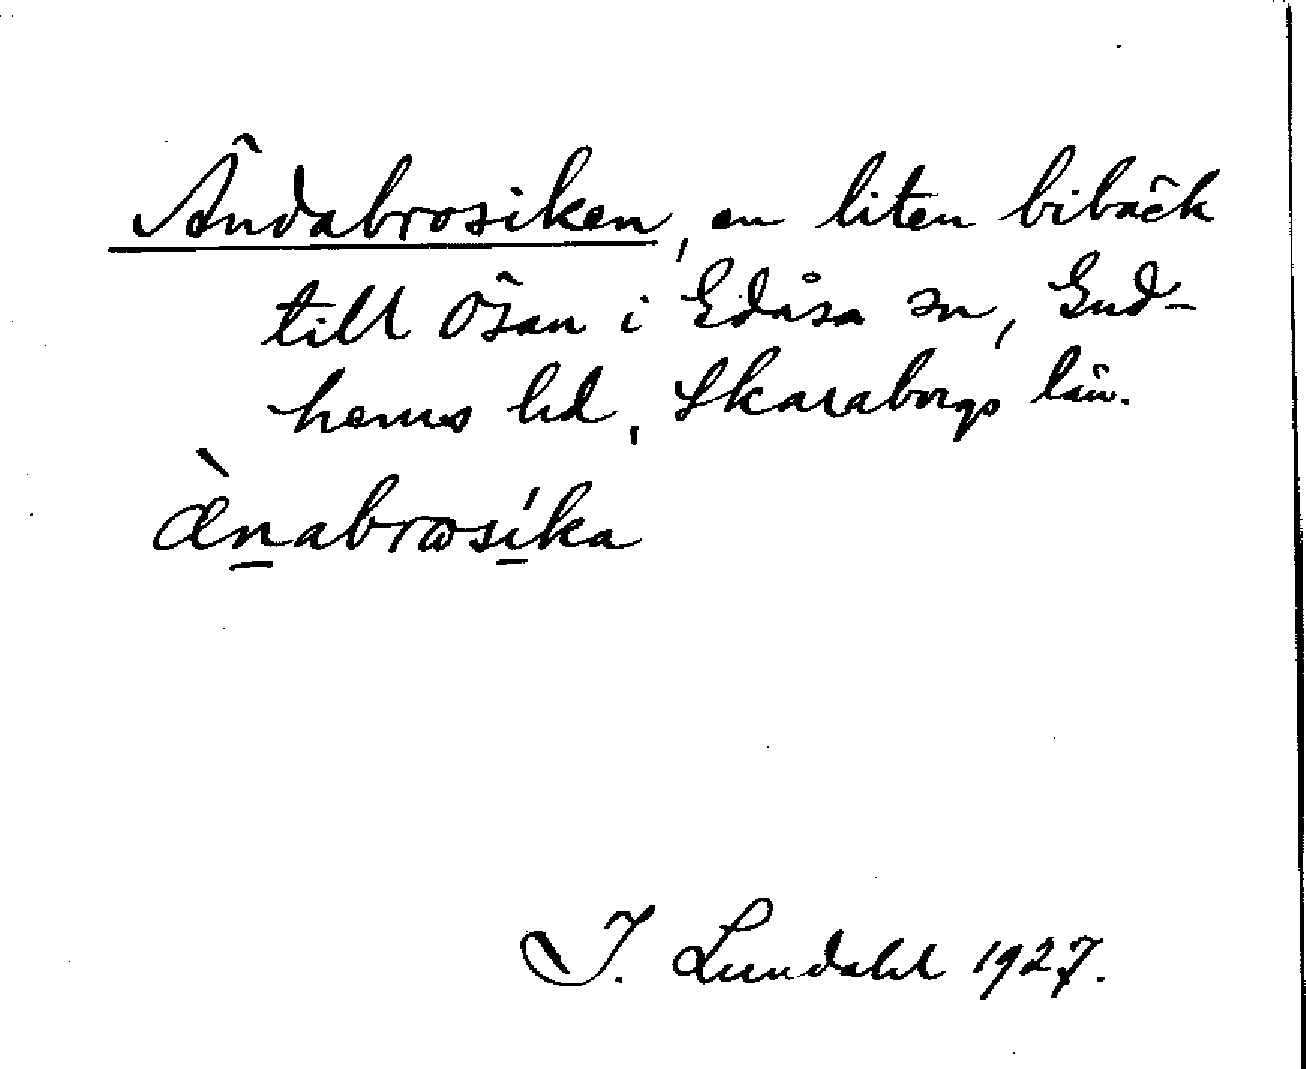 Ändabrosiken, en liten bibäck
till Ösan i Edåsa sn, Gud-
hems hd, Skaraborgs län.
ænabrɷsika
I. Lundahl 1927.